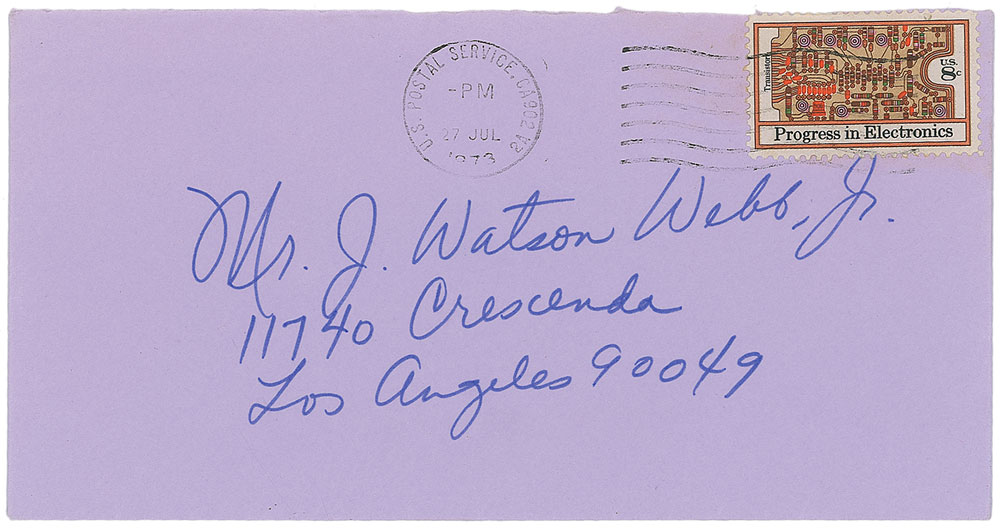 U.S. POSTAL SERVICE, CA902 2A
-PM
27 JUL
1973
Transistors
U.S.
8c
Progress in Electronics
Mr. J. Watson Webb, Jr.
11740 Crescenda
Los Angeles 90049